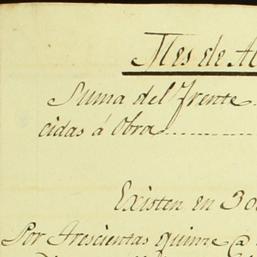 Mes de A
Suma del frente
cidas á Obra
Existen en 30
Por trescientas quinze @